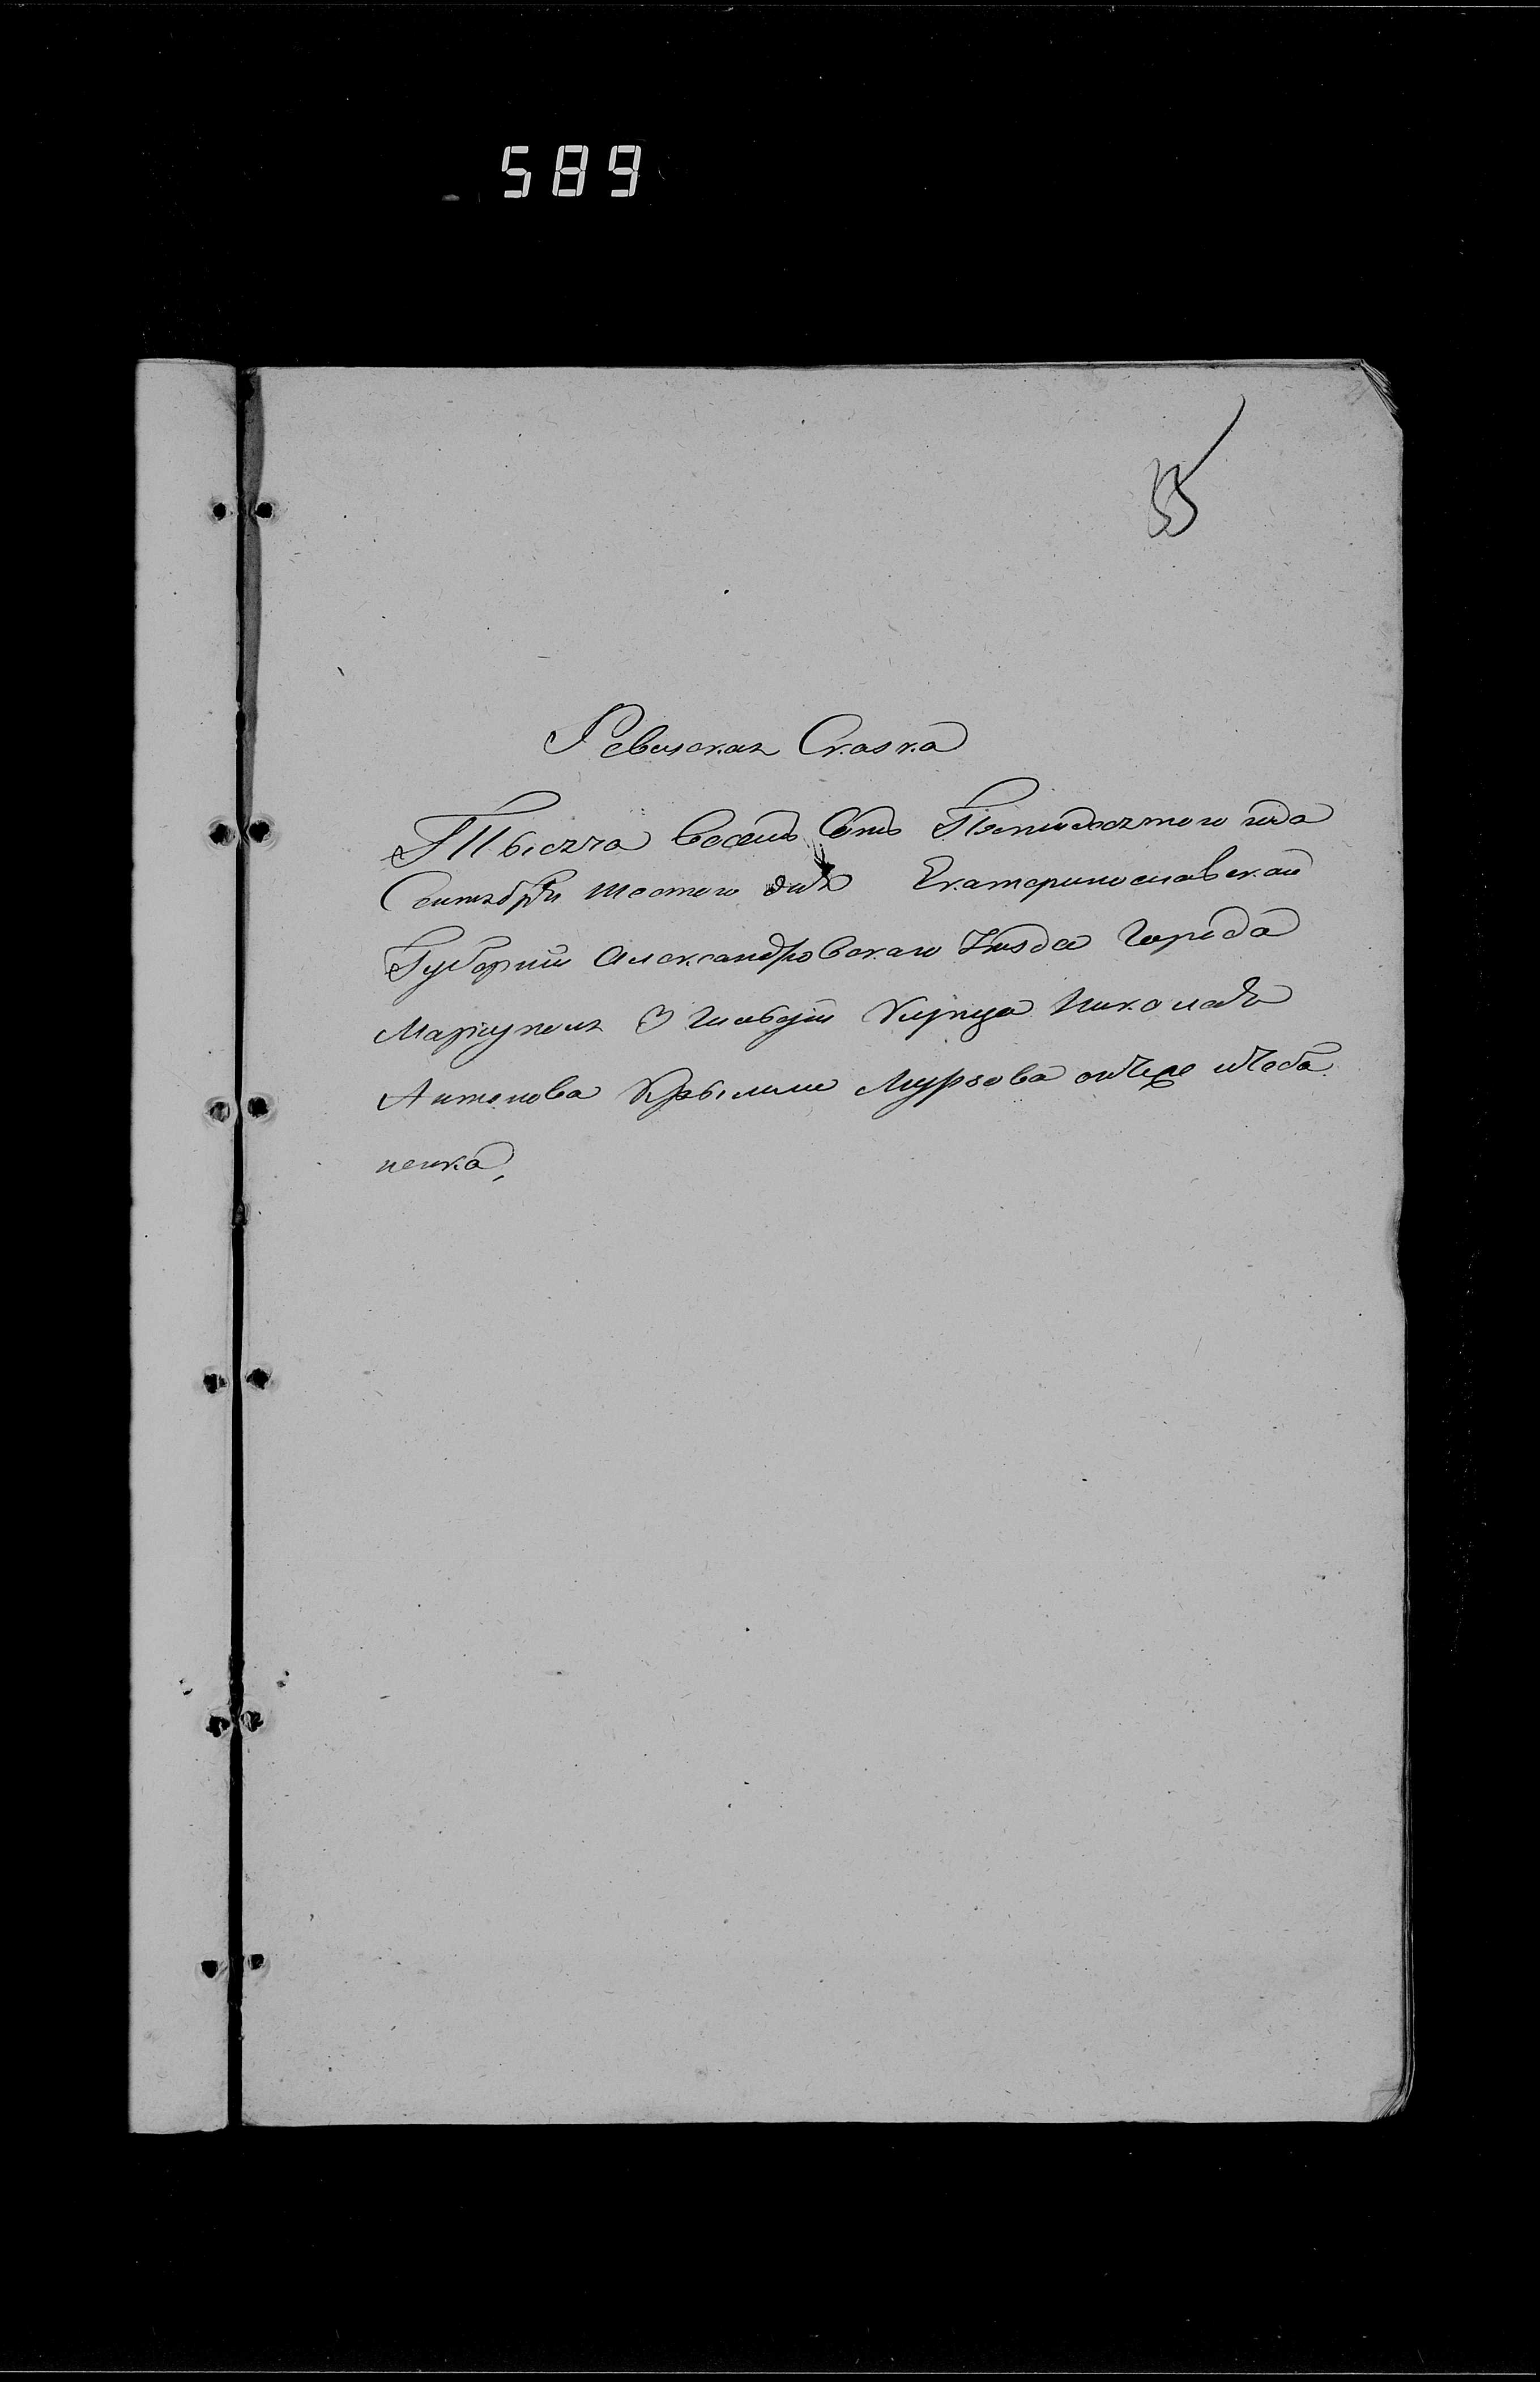 589
55
Ревиская Сказка
Тысяча восемь сотъ Пентидесятого года
Сентября шестого дня Екатеринославской
Губернии Александровскаго Уезда Города
Мариуполя 3 Гилдии Купца Николая
Антонова Крылии Мурзова онъже ичеба
ненка,